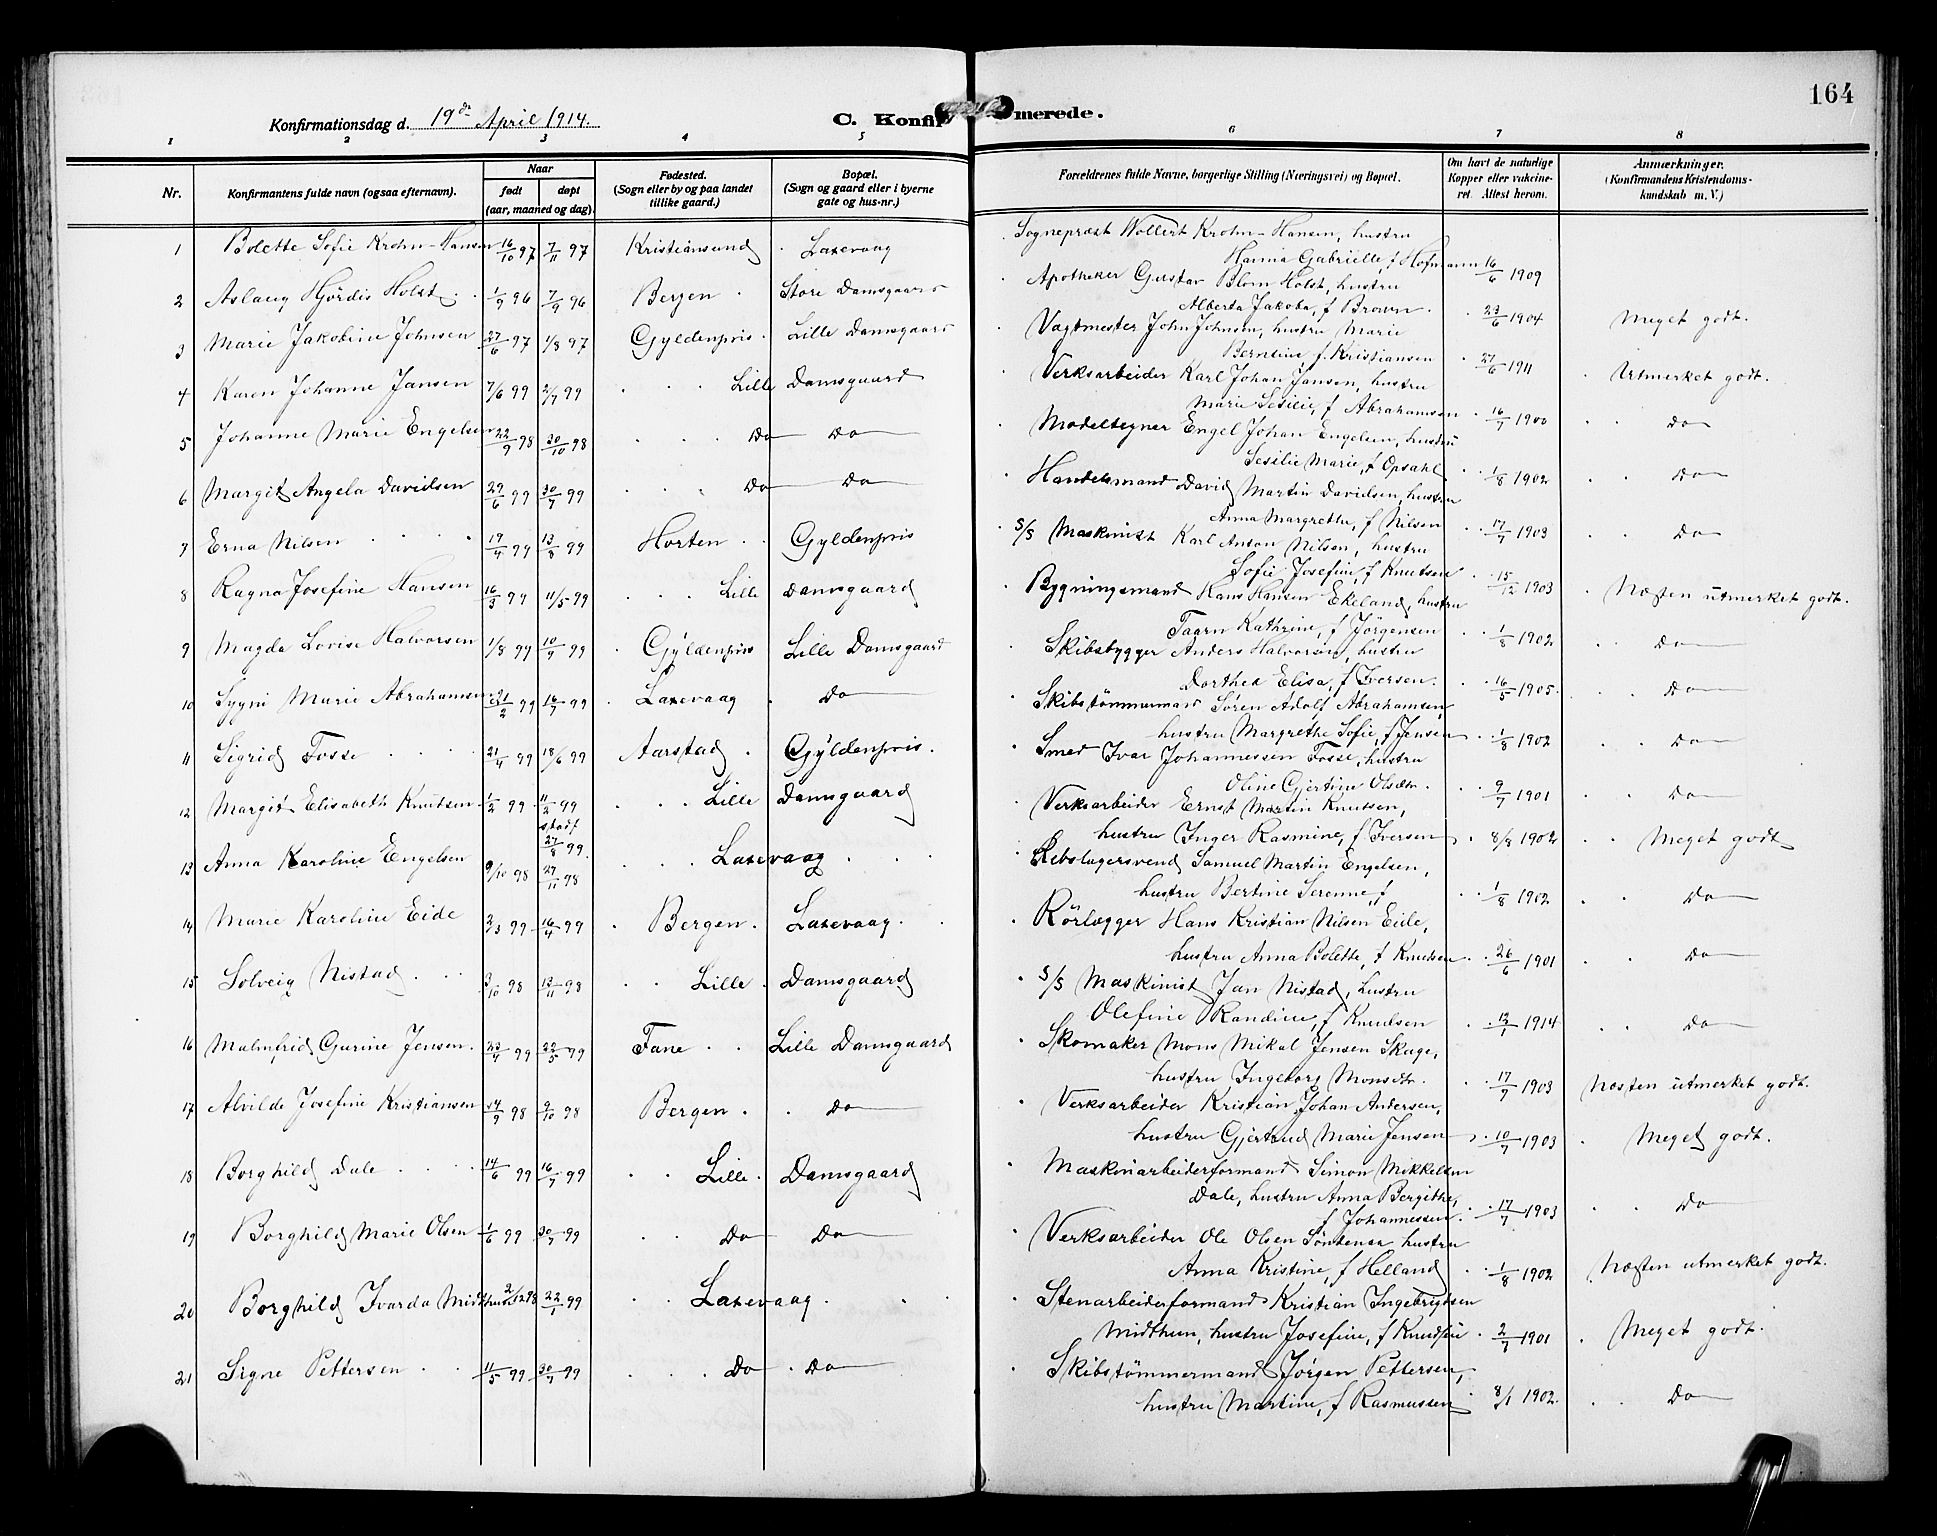 164
Konfirmationsdag d. 19de April 1914.
C. Konfirmerede.
1 2 3 4 5 6 7 8
Nr. Konfirmantens fulde navn (ogsaa efternavn). Naar født døpt (aar, maaned og dag). Fødested. (Sogn eller by og paa landet tillike gaard.) Bopæl. (Sogn og gaard eller i byerne gate og hus-nr.) Forældrenes fulde Navne, borgerlige Stilling (Næringsvei) og Bopæl. Om havt de naturlige Kopper eller vakcineret. Attest herom. Anmærkninger. (Konfirmandens Kristendomskundskab m. V.)
1 Bolette Sofie Krohn-Hansen 16/10 97 7/11 97 Kristiansund Laxevaag Sogneprest Wollert Krohn-Hansen, hustru
Hanna Gabrielle, f Hofmann 16/6 1909
2 Aslaug Hjördis Holst 1/9 96 7/9 96 Bergen Store Damsgaard Apotheker Gustav Blom Holst, hustru
Alberta Jakoba, f Brown. 23/6 1904 Meget godt.
3 Marie Jakobine Johnsen 27/6 97 1/8 97 Gyldenpris Lille Damsgaard Vagtmester John Johnsen, hustru Marie
Berntine, f. Kristiansen 27/6 1911 Utmerket godt.
4 Karen Johanne Jansen 7/6 99 2/7 99 Lille Damsgaard Verksarbeider Karl Johan Jansen, hustru
Marie Sesilie, f Abrahamsen 16/7 1900 Do
5 Johanne Marie Engelsen 22/9 98 30/10 98 Do Do Modeltegner Engel Johan Engelsen, hustru
Sesilie Marie, f Opsahl 1/8 1902 Do
6 Margit Angela Davidsen 29/6 99 30/7 99 Do Do Handelsmand David Martin Davidsen, hustru
Anna Margrethe, f Nilsen 17/7 1903 Do
7 Erna Nilsen 19/4 99 13/8 99 Horten Gyldenpris S/S Maskinist Karl Anton Nilsen, hustru
Sofie Josefine, f Knutsen 15/12 1903 Næsten utmerket godt.
8 Ragna Josefine Hansen 16/3 99 11/5 99 Lille Damsgaard Bygningsmand Hans Hansen Ekeland, hustru
Taarn Kathrine, f Jörgensen 1/8 1902 Do
9 Magda Lovise Halvorsen 1/8 99 10/9 99 Gyldenpris Lille Damsgaard Skibsbygger Anders Halvorsen, hustru
Dorthea Elisa, f Iversen. 16/5 1905. Do
10 Sygni Marie Abrahamsen 21/2 99 16/7 99 Laxevaag Do Skibstömmermand Sören Adolf Abrahamsen,
hustru Margrethe Sofie, f Jensen 1/8 1902 Do
11 Sigrid Fosse 21/4 99 18/6 99 Aarstad Gyldenpris. Smed Ivar Johannessen Fosse, hustru
Oline Gjertine Olsdtr. 9/7 1901 Do
12 Margit Elisabeth Knutsen 1/2 99 11/2 99 stadf 27/8 99. Lille Damsgaard Verksarbeider Ernst Martin Knutsen,
hustru Inger Rasmine, f Iversen 8/8 1902 Meget godt
13 Anna Karoline Engelsen 9/10 98 27/11 98 Laxevaag Samuel Martin Engelsen,
hustru Bertine Serenne, f 1/8 1902 Do
14 Marie Karoline Eide 3/3 99 16/4 99 Bergen. Laxevaag. Rörlægger Hans Kristian Nilsen Eide,
hustru Anna Bolette, f Knudsen 26/6 1901 Do
15 Solveig Nistad 3/10 98 13/11 98 Lille Damsgaard S/S Maskinist Jan Nistad, hustru
Olefine Randine, f Knudsen 12/1 1914 Do
16 Malmfrid Gurine Jensen. 23/4 99 22/5 99 Fane Lille Damsgaard Skomaker Mons Mikal Jensen Skage,
hustru Ingeborg Monsdtr. 17/9 1903 Næsten utmerket godt.
17 Alvilde Josefine Kristiansen 14/9 98 9/10 98 Bergen. Do Verksarbeider Kristian Johan Andersen,
hustru Gjertrud Marie Jensen 10/7 1903 Meget godt.
18 Borghild Dale 14/6 99 16/7 99 Lille Damsgaard Maskinarbeiderformand Simon Mikkelsen
Dale, hustru Anna Bergithe,
f Johannessen. 17/7 1903 Do
19 Borghild Marie Olsen 1/6 99 30/7 99 Do Do Verksarbeider Ole Olsen Söndenaa hustru
Anna Kristine, f Helland 1/8 1902 Næsten utmerket godt.
20 Borghild Ivarda Midthun 2/12 98 22/1 99 Laxevaag. Stenarbeiderformand Kristian Ingebrigtsen
Midthun, hustru Josefine, f Knudsen 2/7 1901 Meget godt.
21 Signe Pettersen 11/5 99 30/7 99 Do Do Skibstömmermand Jörgen Pettersen,
hustru Martine, f Rasmussen 8/1 1902. Do